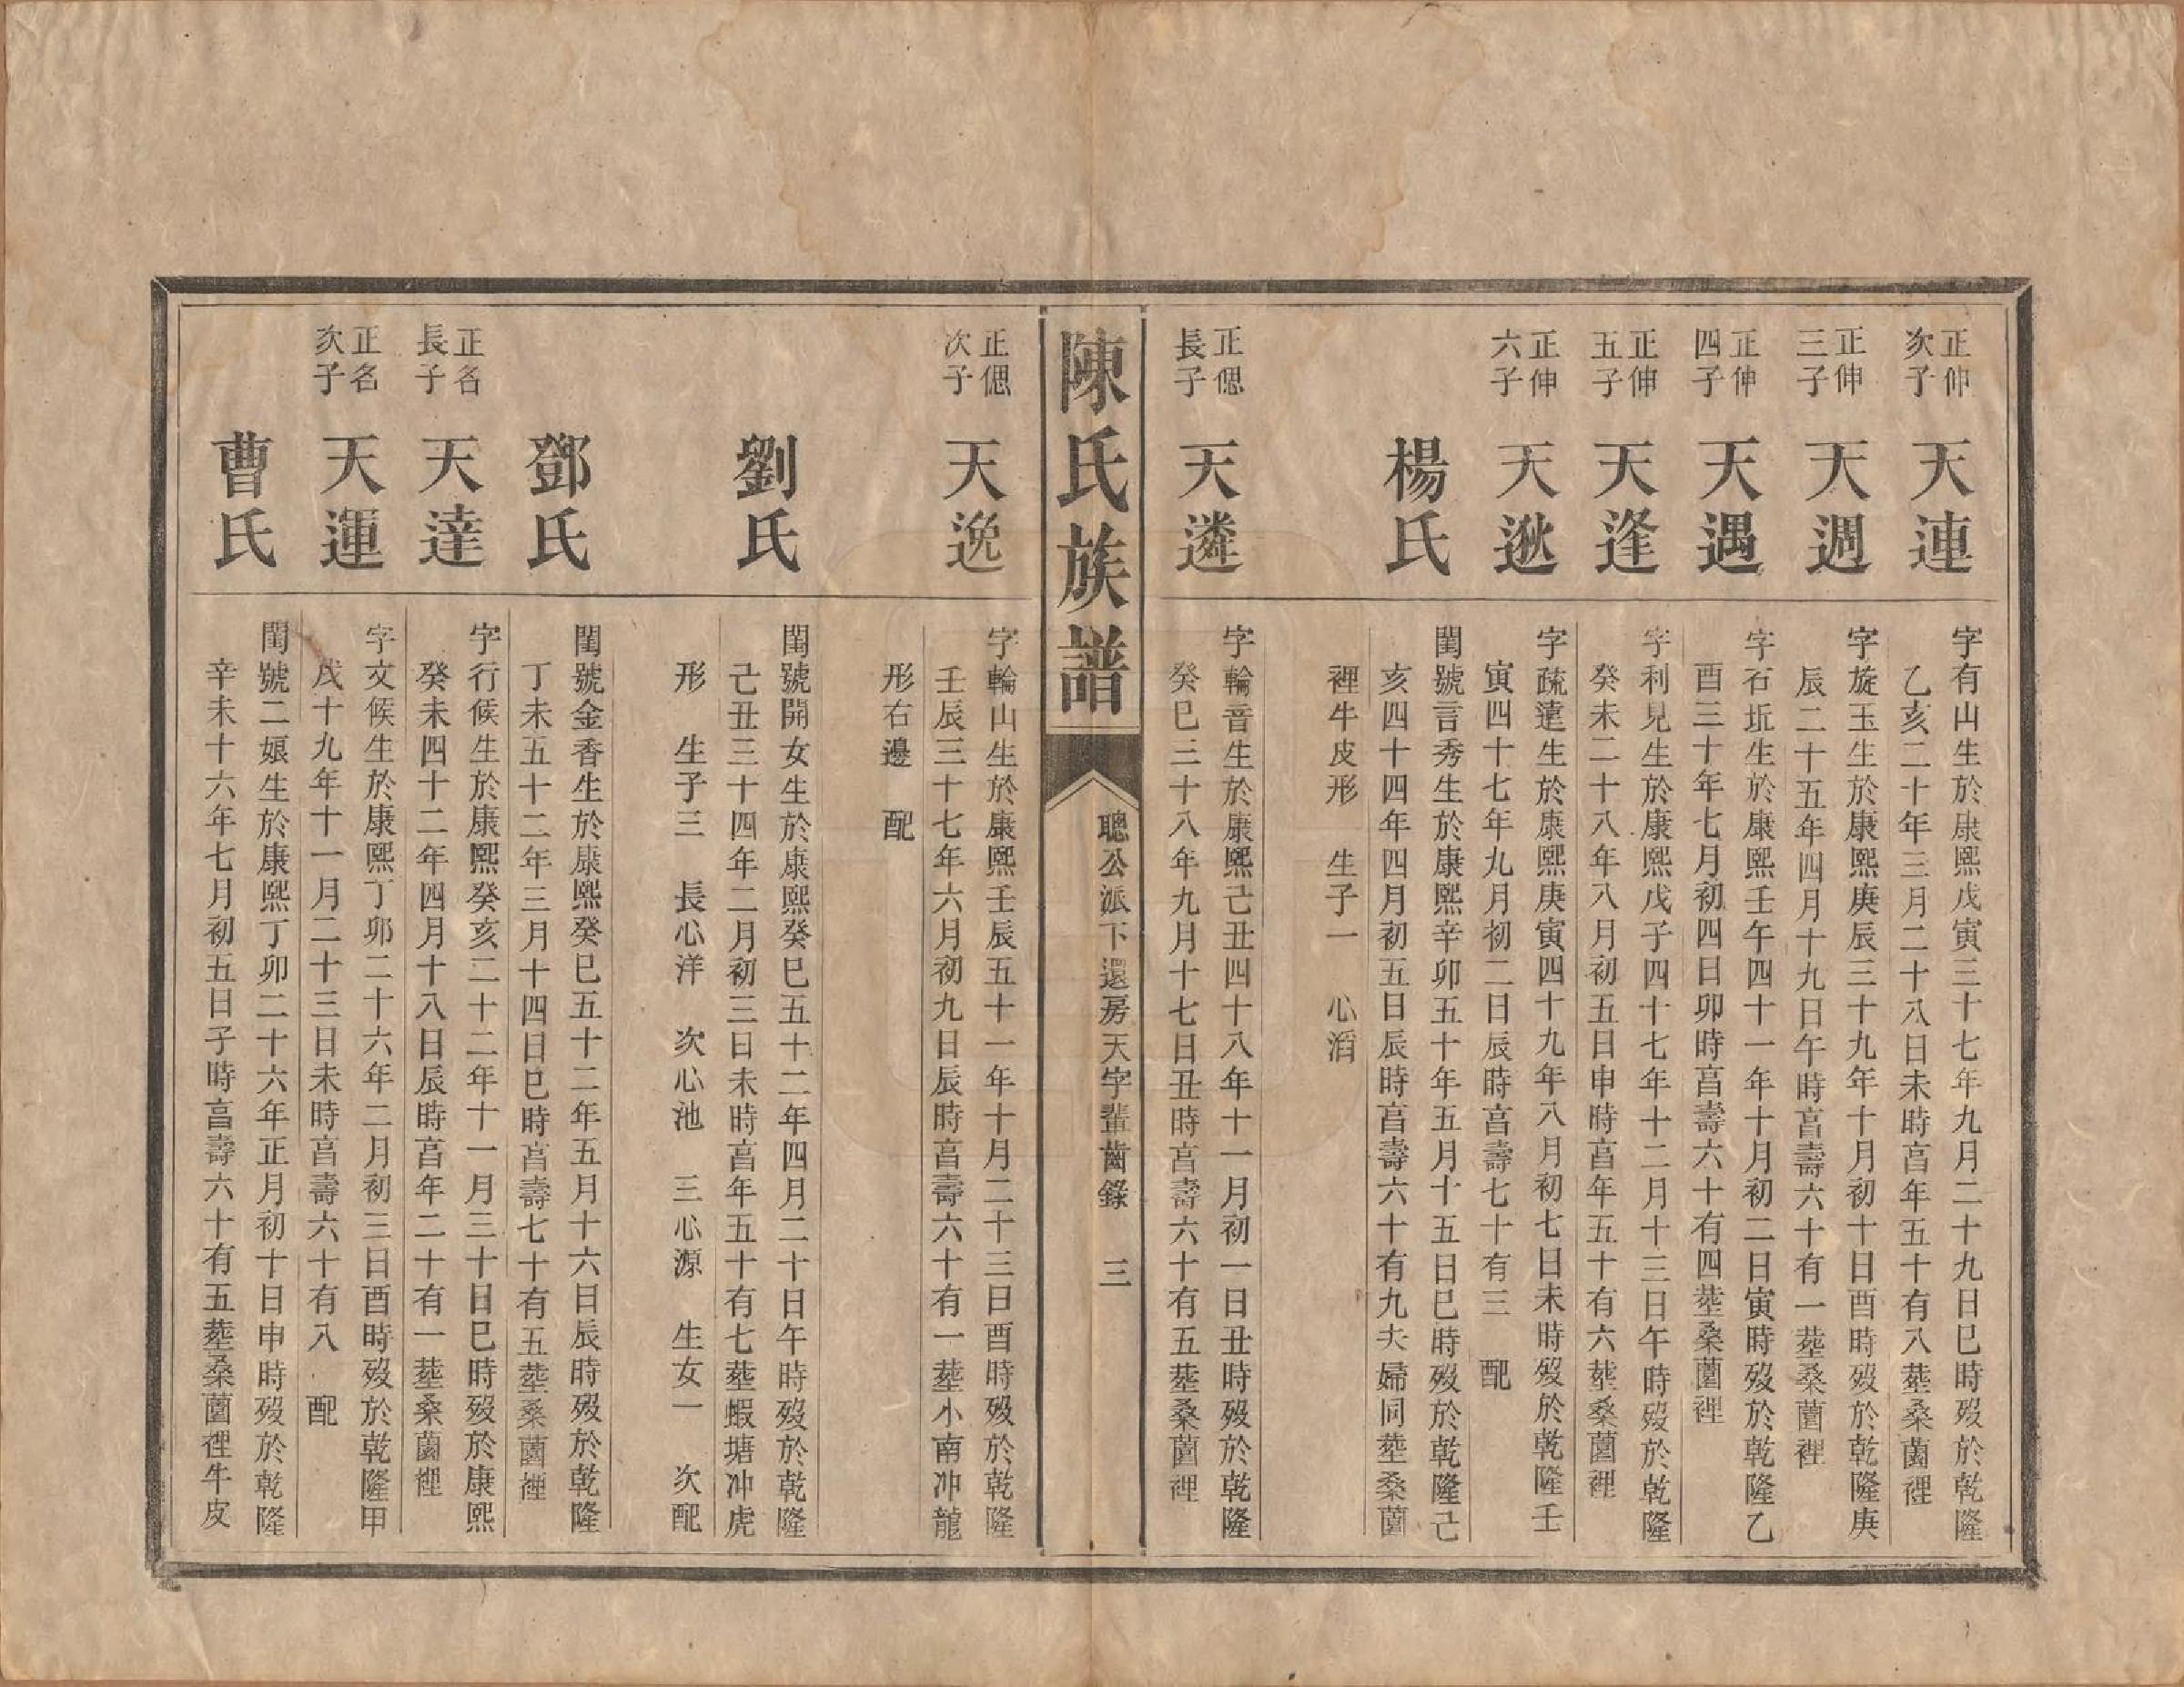 正伸
次子
天連
字有山生於康熙戊寅三十七年九月二十九日巳時歿於乾隆
乙亥二十年三月二十八日未時亯年五十有八塟桑薗裡
正伸
三子
天週
字旋玉生於康熙庚辰三十九年十月初十日酉時歿於乾隆庚
辰二十五年四月十九日午時亯壽六十有一塟桑薗裡
正伸
四子
天遇
字石坵生於康熙壬午四十一年十月初二日寅時歿於乾隆乙
酉三十年七月初四日卯時亯壽六十有四塟桑薗裡
正伸
五子
天逢
字利見生於康熙戊子四十七年十二月十三日午時歿於乾隆
癸未二十八年八月初五日申時亯年五十有六塟桑薗裡
正伸
六子
天逖
字疏達生於康熙庚寅四十九年八月初七日未時歿於乾隆壬
寅四十七年九月初二日辰時亯壽七十有三 配
楊氏
閨號言秀生於康熙辛卯五十年五月十五日巳時歿於乾隆己
亥四十四年四月初五日辰時亯壽六十有九夫婦同塟桑薗
裡牛皮形 生子一 心滔
正偲
長子
天遴
字輪音生於康熙己丑四十八年十一月初一日丑時歿於乾隆
癸巳三十八年九月十七日丑時亯壽六十有五塟桑薗裡
陳氏族譜
聰公派下還房天字輩齒錄 三
正偲
次子
天逸
字輪山生於康熙壬辰五十一年十月二十三日酉時歿於乾隆
壬辰三十七年六月初九日辰時亯壽六十有一塟小南冲龍
形右邊 配
劉氏
閨號開女生於康熙癸巳五十二年四月二十日午時歿於乾隆
己丑三十四年二月初三日未時亯年五十有七塟蝦塘冲虎
形 生子三 長心洋 次心池 三心源 生女一 次配
鄧氏
閨號金香生於康熙癸巳五十二年五月十六日辰時歿於乾隆
丁未五十二年三月十四日巳時亯壽七十有五塟桑薗裡
正名
長子
天達
字行候生於康熙癸亥二十二年十一月三十日巳時歿於康熙
癸未四十二年四月十八日辰時亯年二十有一塟桑薗裡
正名
次子
天運
字文候生於康熙丁卯二十六年二月初三日酉時歿於乾隆甲
戌十九年十一月二十三日未時亯壽六十有八 配
曹氏
閨號二娘生於康熙丁卯二十六年正月初十日申時歿於乾隆
辛未十六年七月初五日子時亯壽六十有五塟桑薗裡牛皮